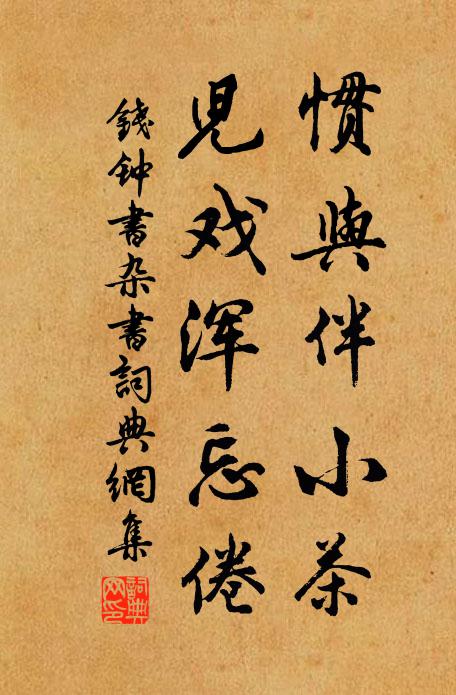 慣與伴小茶
兒戏浑忘倦
錢钟書杂書詞典網集
詞典
网印